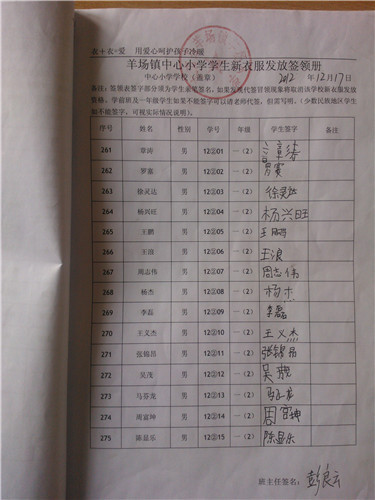 衣+衣=爱 用爱心呵护孩子冷暖
羊场镇中心小学学生新衣服发放签领册
中心小学学校(盖章) 2012年12月17日
备注:签领表签字部分须为学生亲笔签名,如果发现代签冒领现象将取消该学校新衣服发放
资格。学前班及一年级学生如果不能签字可以请老师代签,但需写明。(少数民族地区学生
如不能签字,可视实际情况说明)。
序号 姓名 性别 学号 年级 学生签字 备注
261 章涛 男 12②01 一(2) 章涛
262 罗赛 男 12②02 一(2) 罗赛
263 徐灵达 男 12②03 一(2) 徐灵达
264 杨兴旺 男 12②04 一(2) 杨兴旺
265 王鹏 男 12②05 一(2) 王鹏
266 王 男 12②06 一(2) 王浪
267 周志伟 男 12②07 一(2) 周志伟
268 杨杰 男 12②08 一(2) 杨杰
269 李磊 男 12②09 一(2) 李磊
270 王义杰 男 12②10 一(2) 王义杰
271 张锦昌 男 12②11 一(2) 张锦昌
272 吴茂 男 12②12 一(2) 吴
273 马芬龙 男 12②13 一(2) 马
274 周富坤 男 12②14 一(2) 周富坤
275 陈显乐 男 12②15 一(2) 陈显乐
班主任签名: 彭良云